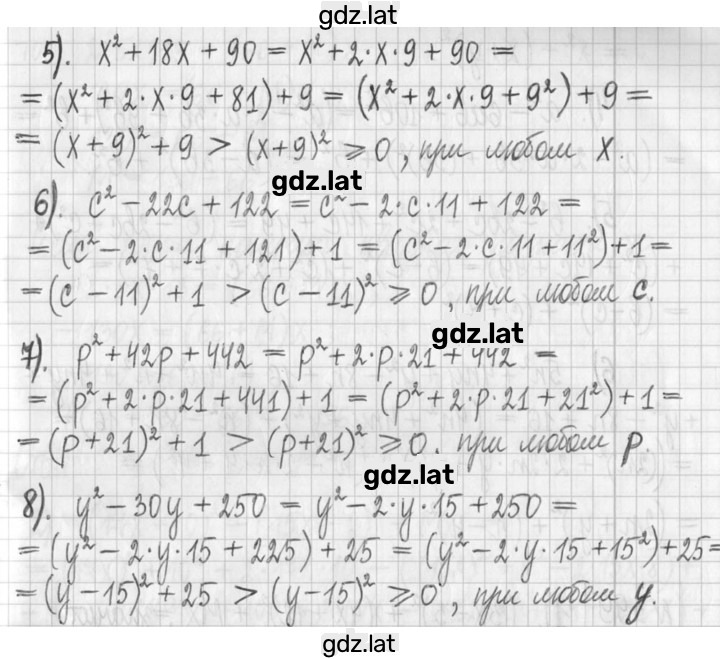 gdz.lat
5). x² + 18x + 90 = x² + 2·x·9 + 90 =
= (x² + 2·x·9 + 81) + 9 = (x² + 2·x·9 + 9²) + 9 =
= (x + 9)² + 9 > (x+9)² ⩾ 0, при любом x.
gdz.lat
6). c² − 22c + 122 = c² − 2·c·11 + 122 =
= (c² − 2·c·11 + 121) + 1 = (c² − 2·c·11 + 11²) + 1 =
= (c − 11)² + 1 > (c − 11)² ⩾ 0, при любом c.
gdz.lat
7). p² + 42p + 442 = p² + 2·p·21 + 442 =
= (p² + 2·p·21 + 441) + 1 = (p² + 2·p·21 + 21²) + 1 =
= (p+21)² + 1 > (p+21)² ⩾ 0. при любом p.
gdz.lat
8). y² − 30y + 250 = y² − 2·y·15 + 250 =
= (y² − 2·y·15 + 225) + 25 = (y² − 2·y·15 + 15²) + 25 =
= (y − 15)² + 25 > (y − 15)² ⩾ 0, при любом y.
gdz.lat